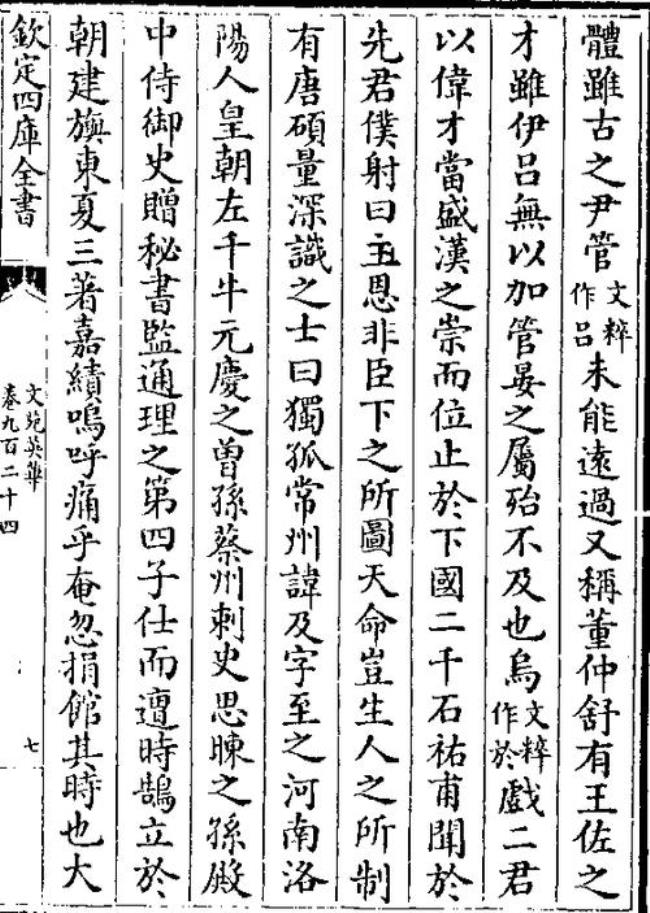 體雖古之尹管文粹作吕未能遠過又稱董仲舒有王佐之
才雖伊吕無以加管晏之屬殆不及也烏文粹作於戲二君
以偉才當盛漢之崇而位止於下國二千石祐甫聞於
先君僕射曰主恩非臣下之所圖天命豈生人之所制
有唐碩量深識之士曰獨孤常州諱及字至之河南洛
陽人皇朝左千牛元慶之曾孫蔡州刺史思暕之孫殿
中侍御史贈秘書監通理之第四子仕而遭時鵠立於
朝建旟東夏三著嘉績嗚呼痛乎奄忽捐館其時也大
欽定四庫全書
文苑英華
卷九百二十四
七